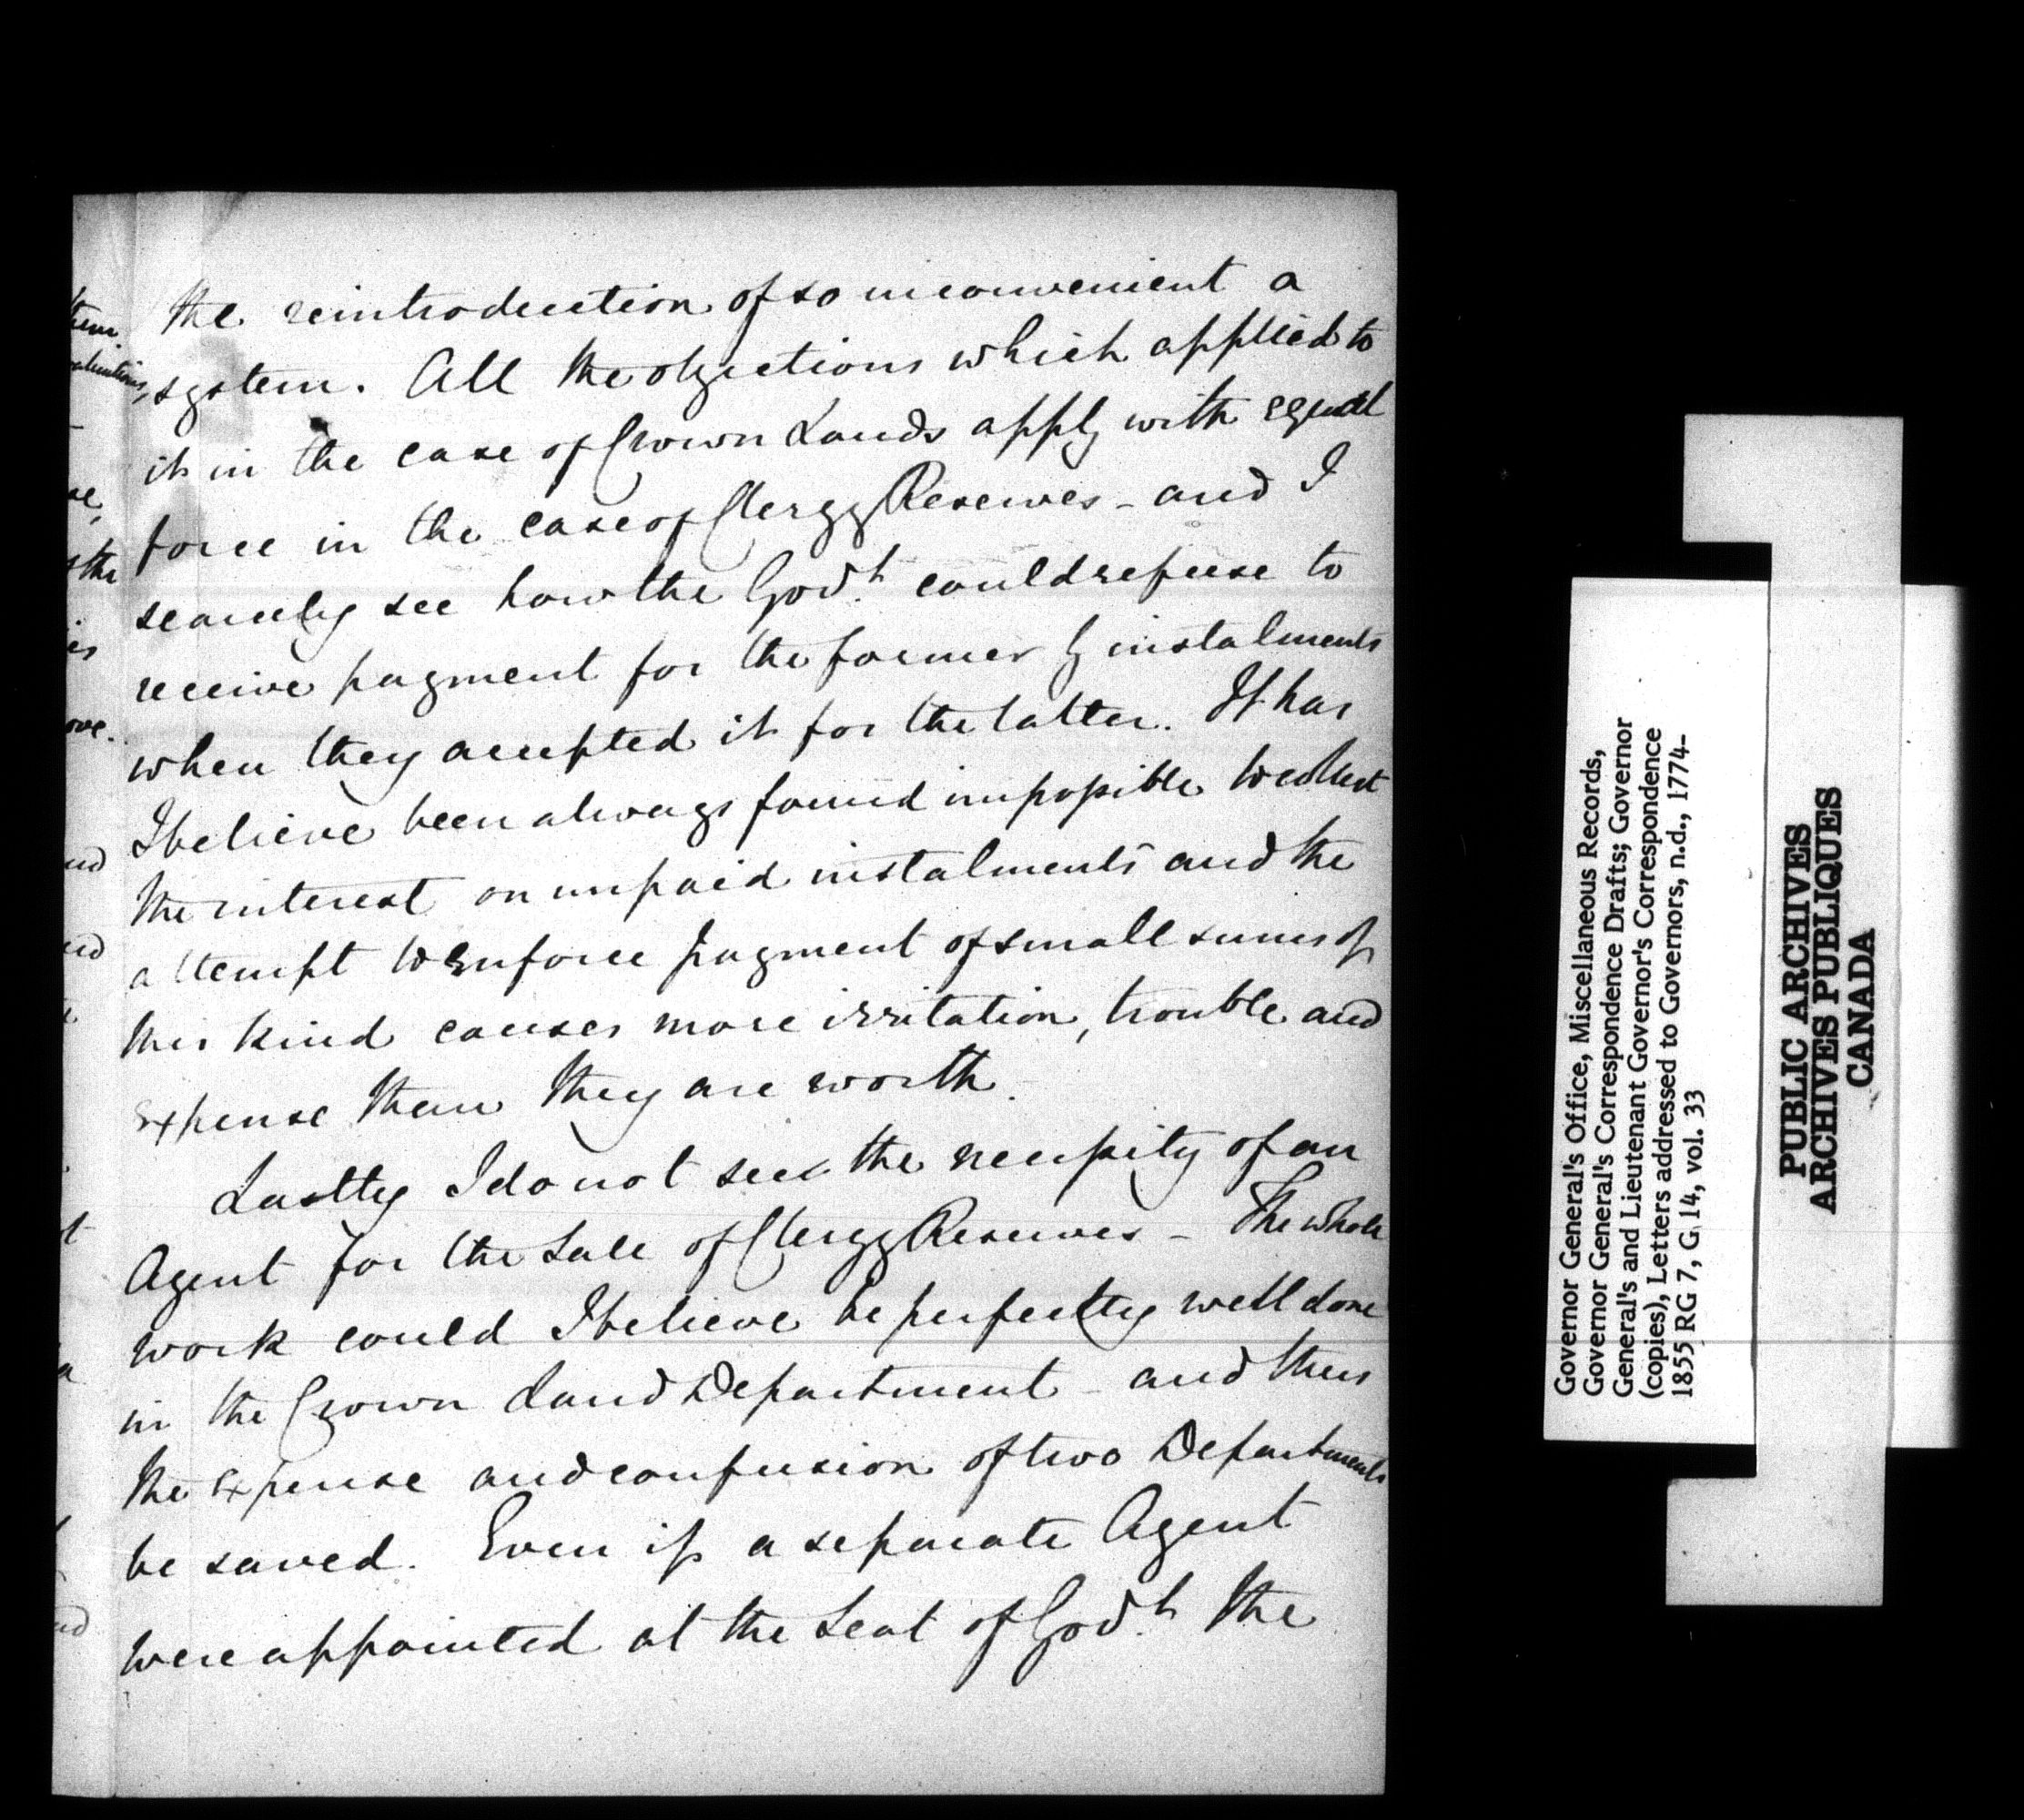 the reintroduction of so inconvenient a
system. All the objections which applied to
it in the case of Crown Lands apply with equal
force in the case of Clergy Reserves - and I
scarcely see how the Govt. could refuse to
receive payment for the former by instalments
when they accepted it for the latter. It has
I believe been always found impossible to collect
the interest on unpaid instalments and the
attempt to enforce payment of small sums of
this kind causes more irritation, trouble and
expense than they are worth.
Lastly I do not see the necessity of an
Agent for the Sale of Clergy Reserves - The whole
work could I believe be perfectly well done
in the Crown Land Department - and thus
the expense and confusion of two Departments
be saved. Even if a separate Agent
were appointed at the Seat of Govt. the
them.
valuations,
se,
the
is
ove.
nd
Governor General's Office, Miscellaneous Records,
Governor General's Correspondence Drafts; Governor
General's and Lieutenant Governor's Correspondence
(copies), Letters addressed to Governors, n.d., 1774-
1855 RG 7, G 14, vol. 33
PUBLIC ARCHIVES
ARCHIVES PUBLIQUES
CANADA